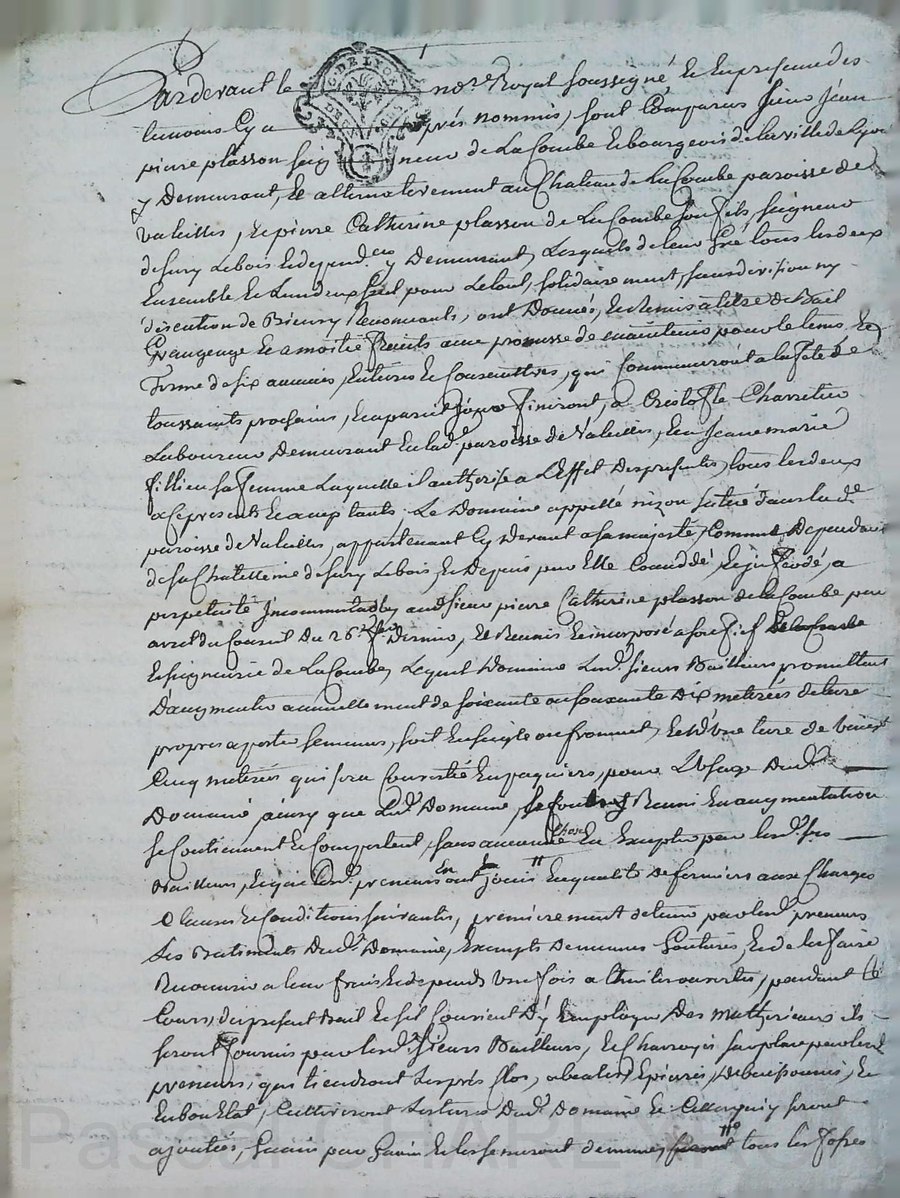 Pardevant le no.re Royal soussigné Et En presence des
temoins Cy a prés nommés, sont Comparus sieur Jean
pierre plasson seig neur de La Combe Et bourgeois de la ville de Lyon
G. DE LYON
y Demeurant, Et alternativement au Chateau de La Combe paroisse de
valeilles, Et pierre Catherine plasson de La Combe son fils, seigneur
de sury Lebois Et depend.ces y Demeurant, Lesquels de leur Gré tous les deux
Ensemble Et L'un d'eux seul pour Le tout, solidairement, sans division ny
discution de Biens y Renonçants, ont Donné, Et Remis a titre de Bail
Grangeage Et a moitié fruits avec promesse de maintenir pour le tems Et
Terme de six années, Entieres Et Consecutives, qui Commenceront a la fete de
toussaints prochain, Et a pareil jour finiront, a Cristofle Charretier
Laboureur Demeurant En lad.e paroisse de Valeilles, Et a Jeanemarie
fillieu sa femme Laquelle il authorise a L'Effet Des presentes, tous les deux
a ce presents Et acceptants. Le Domaine appellé situé dans lad.e
paroisse de Valeilles, appartenant Cy Devant a sa majesté, Comme Dependant
de sa Chatellenie de sury Lebois, Et Depuis par Elle Concedé, Et infeodé, a
perpetuité Incommutable, aud. sieur pierre Catherine plasson de la Combe par
arret du Conseil Du 26.e Dernier, Et Reunis Et incorporé a son fief
Et seigneurie de La Combe, Lequel Domaine Lesd. sieurs Bailleurs promettent
D'augmenter annuellement de soixante ou soixante Dix meterées de terre
propres a porter semences, soit En seigle ou froment, Et d'Une terre de vingt
Cinq meterées qui sera Convertie En paquiers, pour L'Usage Dud.
Domaine, ainsy que Led. Domaine, Reuni En augmentation
se Contiennent Et Comportent, sans aucune chose En Excepter par lesd. srs
Bailleurs, Et que Lesd. preneurs En ont joui En qualité De fermiers aux Charges
Clauses Et Conditions suivantes, premierement de tenir par lesd. preneurs
Les Batiments Dud. Domaine, Exempts De menues Goutieres, Et de les faire
Recouvrir a leur frais Et depends Une fois a thuile ouverte, pendant le
Cours, du present Bail Et s'il Convient D'y Employer Des matheriaux ils
seront fournis par lesd. sieurs Bailleurs, Et Charroyés sur place par les d.
preneurs, qui tiendront Les prés Clos, Epierrés, Et
En bon Etat, Cultiveront Les terres Dud. Domaine Et Celles qui y seront
ajoutées, Gain par Gain Et les semeront de même, tous les fossés
Pascal CHAREYRON